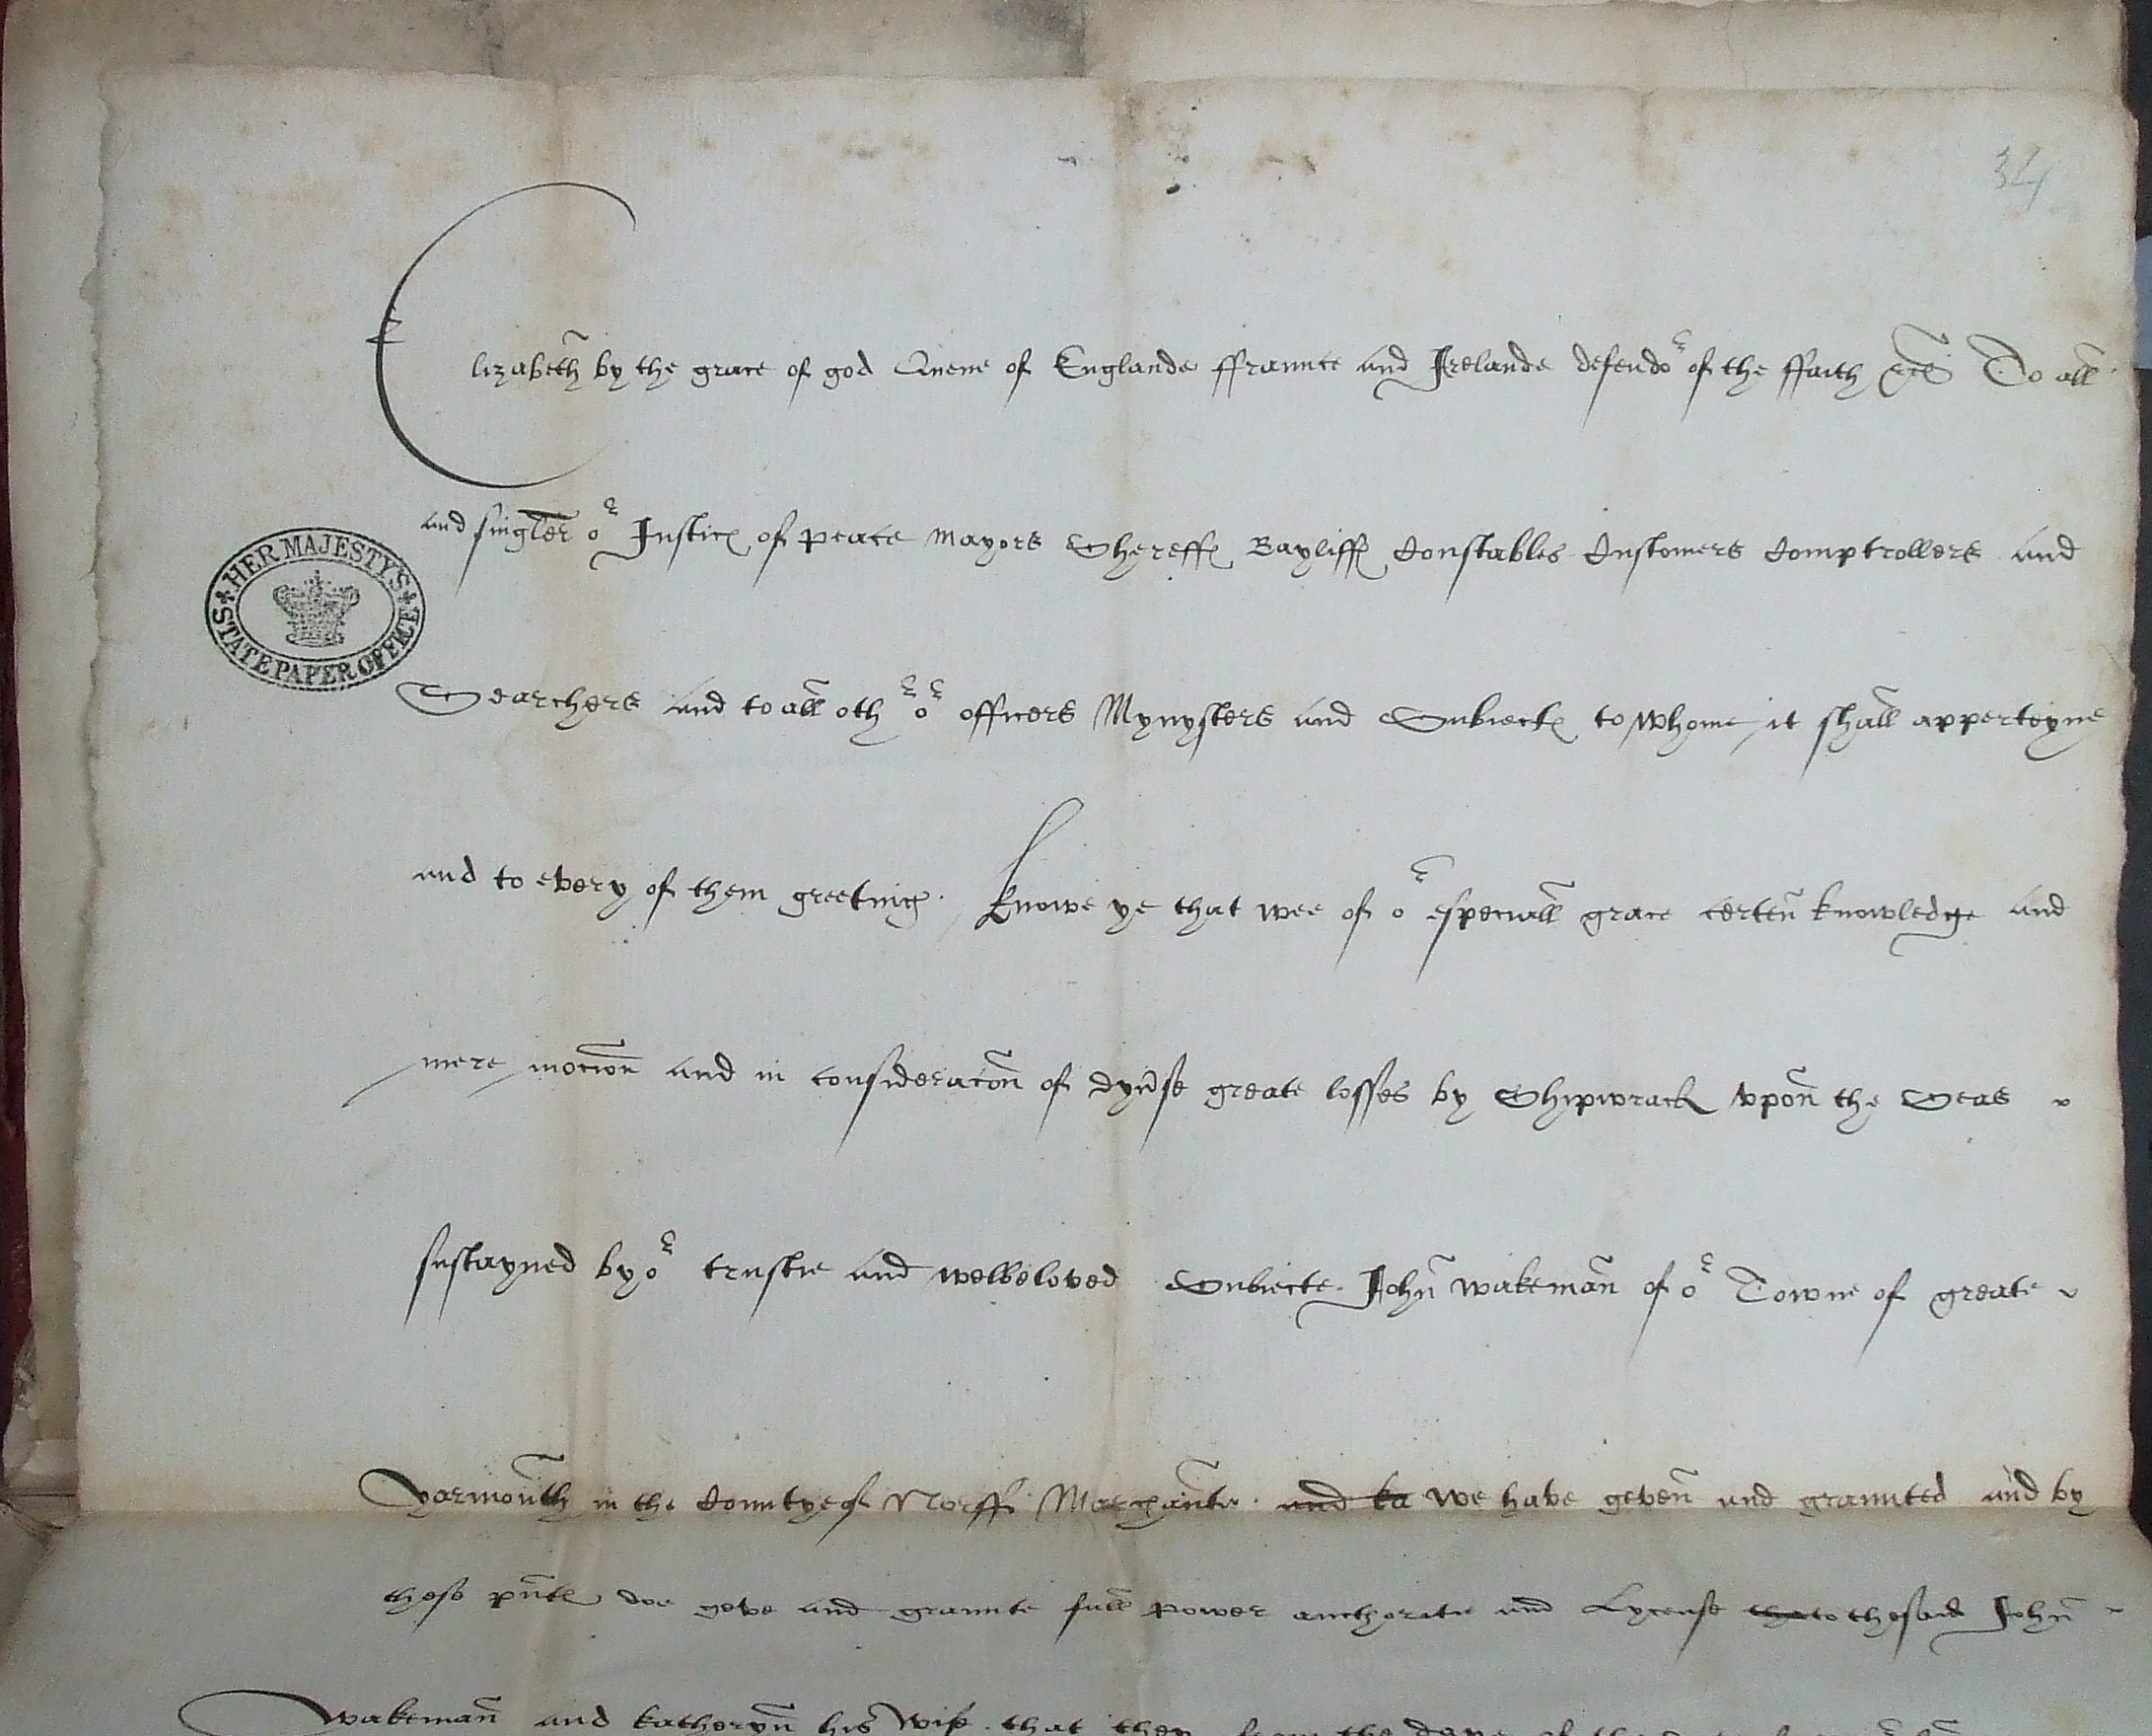 34
Elizabeth by the grace of god Quene of Englande ffraunce and Irelande defendor of the ffaith &c To all
and singler or Justices of peace Mayors Shereffes Bayliffes Constables Customers Comptrollers and
HER MAJESTY'S STATE PAPER OFFICE
Searchers and to all othr or officers Mynysters and Subiectes to whome it shall apperteyne
and to every of them greeting. Knowe ye that wee of or especiall grace certen knowledge and
mere mocion and in consideracon of dyvrse greate losses by Shipwrack vpon the Seas
sustayned by or trustie and welbeloved Subiecte. John Wakeman of or Towne of greate
Yarmouth in the Countye of Norff Marchante. and ka we have geven and graunted and by
these pntes doe geve and graunte full power aucthoritie and Lycense tha to thesaid John
Wakeman and Katheryn his Wife. that they from the daye of the